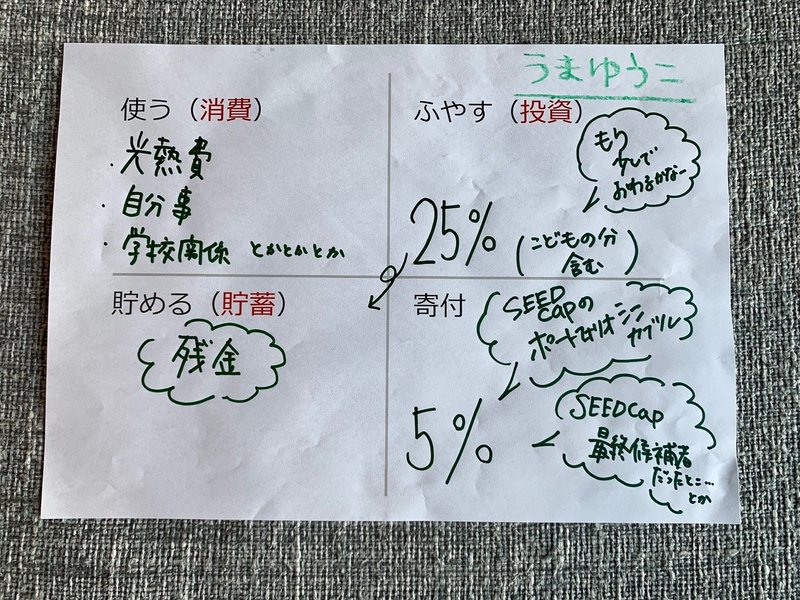 うまゆうこ
使う（消費）
・光熱費
・自分事
・学校関係 とかとかとか
ふやす（投資）
もう
少しで
おわるかなー
25%
（こどもの分
含む）
貯める（貯蓄）
残金
寄付
SEED
Capの
ポートフォリオ
カブツレ
5%
SEEDCap
最終候補者
だったとこ…
とか